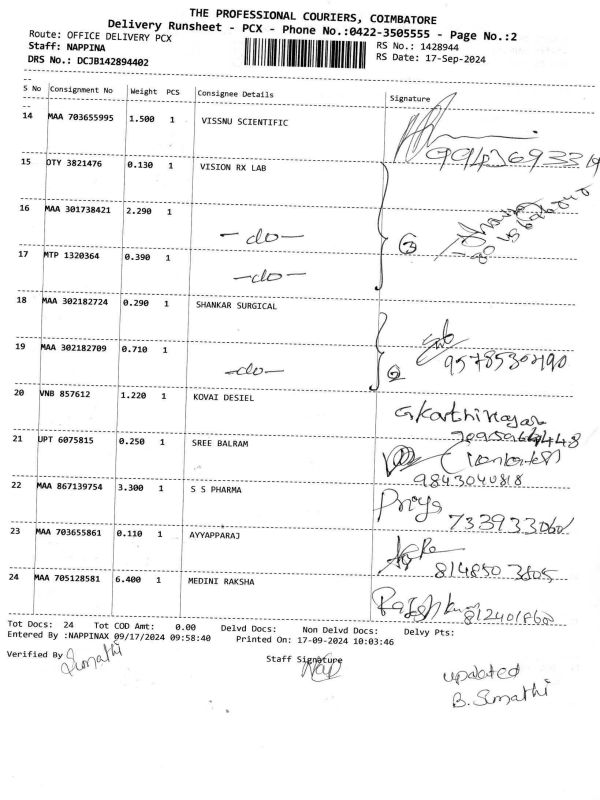 THE PROFESSIONAL COURIERS, COIMBATORE
Delivery Runsheet - PCX - Phone No.:0422-3505555 - Page No.:2
Route: OFFICE DELIVERY PCX
RS No.: 1428944
Staff: NAPPINA
RS Date: 17-Sep-2024
DRS No.: DCJB142894402
S No Consignment No Weight PCS Consignee Details Signature
14 MAA 703655995 1.500 1 VISSNU SCIENTIFIC
15 OTY 3821476 0.130 1 VISION RX LAB
16 MAA 301738421 2.290 1 -do-
17 MTP 1320364 0.390 1 -do-
18 MAA 302182724 0.290 1 SHANKAR SURGICAL
19 MAA 302182709 0.710 1 -do-
20 VNB 857612 1.220 1 KOVAI DESIEL
21 UPT 6075815 0.250 1 SREE BALRAM
9843040818
22 MAA 867139754 3.300 1 S S PHARMA Priya
23 MAA 703655861 0.110 1 AYYAPPARAJ
814850 3805
24 MAA 705128581 6.400 1 MEDINI RAKSHA
Tot Docs: 24 Tot COD Amt: 0.00 Delvd Docs: Non Delvd Docs: Delvy Pts:
Entered By :NAPPINAX 09/17/2024 09:58:40 Printed On: 17-09-2024 10:03:46
Verified By Sumathi
Staff Signature
updated
B. Sumathi